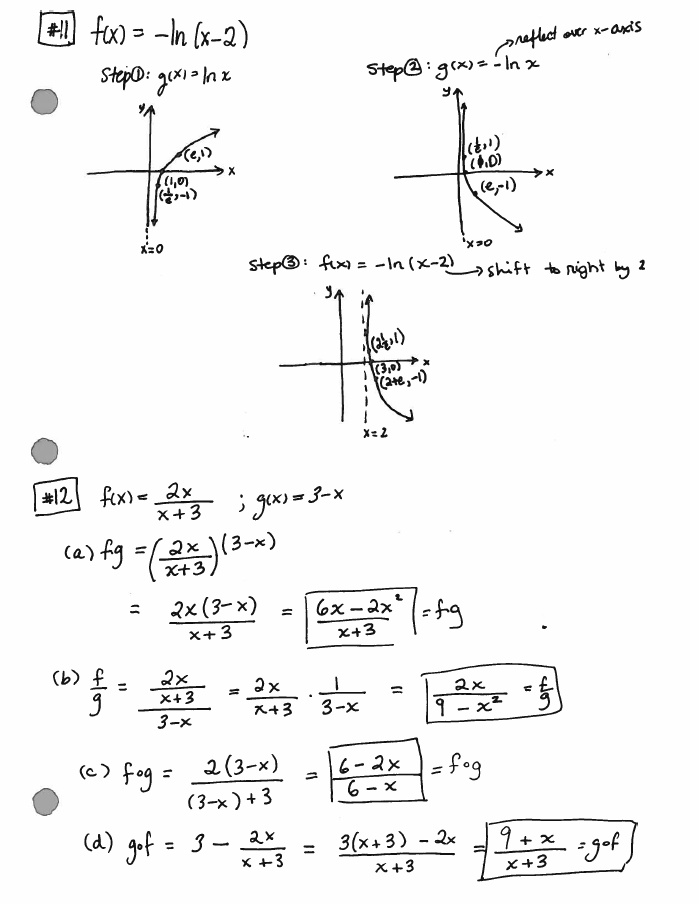 #11 f(x) = -ln(x-2)
Step①: g(x) = ln x
Step②: g(x) = -ln x → reflect over x-axis
y
(e,1)
x
(1,0)
(1/e,-1)
x=0
y
(1/e,1)
(1,0)
x
(e,-1)
x=0
Step③: f(x) = -ln(x-2) → shift to right by 2
y
(2 1/e,1)
x
(3,0)
(2+e,-1)
x=2
#12 f(x) = 2x/(x+3) ; g(x) = 3-x
(a) fg = (2x/(x+3))(3-x)
= 2x(3-x)/(x+3) = (6x-2x²)/(x+3) = fg
(b) f/g = (2x/(x+3))/(3-x) = 2x/(x+3) · 1/(3-x) = 2x/(9-x²) = f/g
(c) fog = 2(3-x)/((3-x)+3) = (6-2x)/(6-x) = fog
(d) gof = 3 - 2x/(x+3) = (3(x+3)-2x)/(x+3) = (9+x)/(x+3) = gof